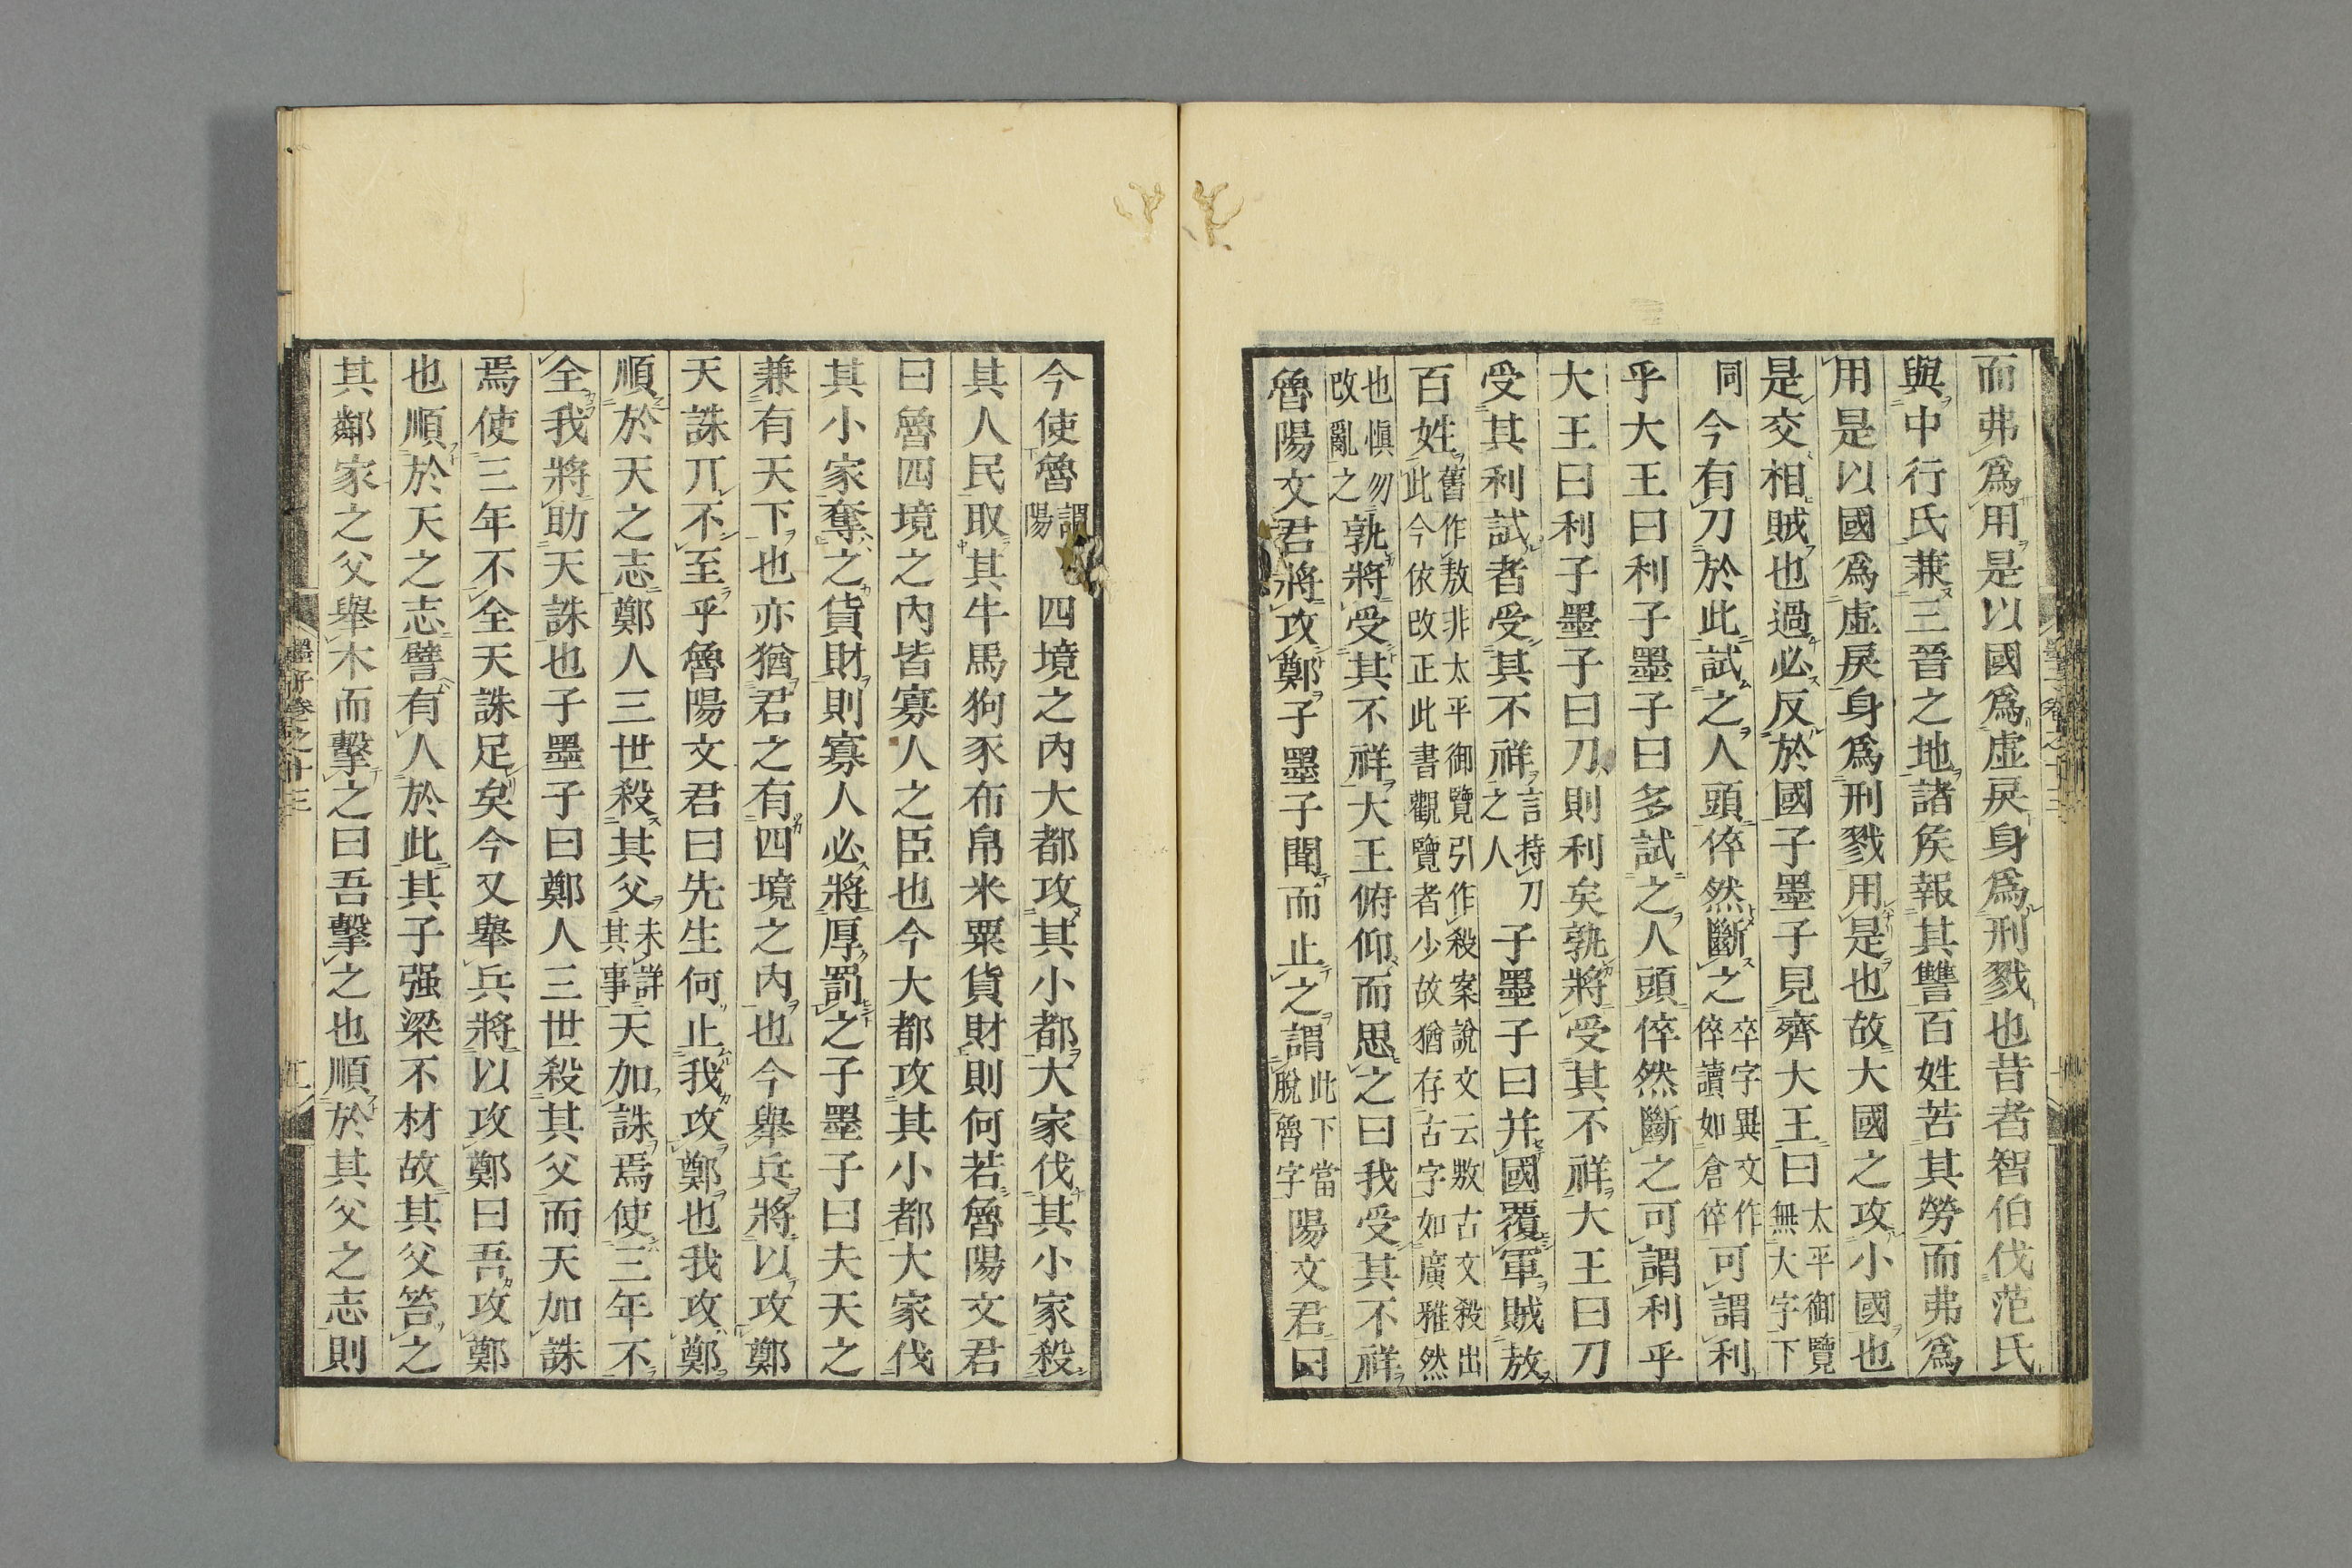 而弗爲用是以國爲虛戾身爲刑戮也昔者智伯伐范氏
與中行氏兼三晉之地諸矦報其讐百姓苦其勞而弗爲
用是以國爲虛戾身爲刑戮用是也故大國之攻小國也
是交相賊也過必反於國子墨子見齊大王曰太平御覽無大字下
同今有刀於此試之人頭倅然斷之卒字異文作倅讀如倉倅可謂利
乎大王曰利子墨子曰多試之人頭倅然斷之可謂利乎
大王曰利子墨子曰刀則利矣孰將受其不祥大王曰刀
受其利試者受其不祥言持刀之人子墨子曰并國覆軍賊敖
百姓舊作敖非太平御覽引作殺案說文云敫古文殺出此今依改正此書觀覽者少故猶存古字如廣雅然
也愼勿改亂之孰將受其不祥大王俯仰而思之曰我受其不祥
魯陽文君將攻鄭子墨子聞而止之謂此下當脫魯字陽文君曰
今使魯謂陽四境之內大都攻其小都大家伐其小家殺
其人民取其牛馬狗豕布帛米粟貨財則何若魯陽文君
曰魯四境之內皆寡人之臣也今大都攻其小都大家伐
其小家奪之貨財則寡人必將厚罰之子墨子曰夫天之
兼有天下也亦猶君之有四境之內也今舉兵將以攻鄭
天誅丌不至乎魯陽文君曰先生何止我攻鄭也我攻鄭
順於天之志鄭人三世殺其父未詳其事天加誅焉使三年不
全我將助天誅也子墨子曰鄭人三世殺其父而天加誅
焉使三年不全天誅足矣今又舉兵將以攻鄭曰吾攻鄭
也順於天之志譬有人於此其子强梁不材故其父笞之
其鄰家之父舉木而擊之曰吾擊之也順於其父之志則
墨子卷之十三